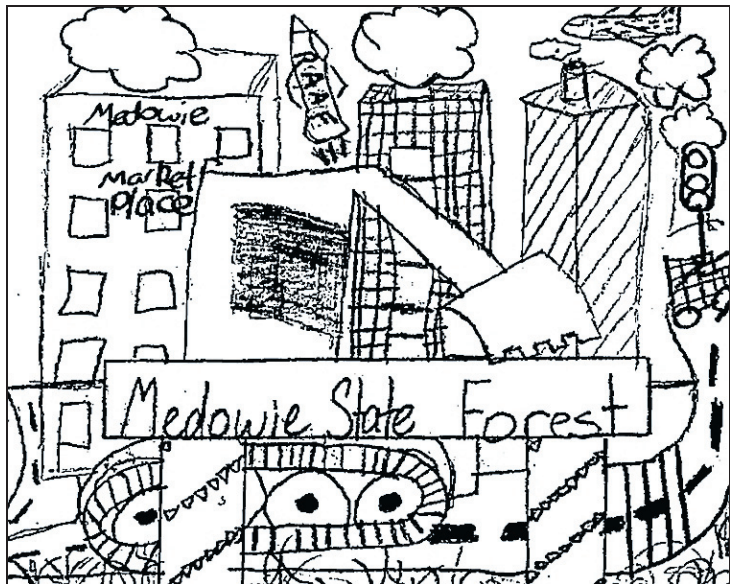 Medowie
Market
Place
RAAF
Medowie State Forest